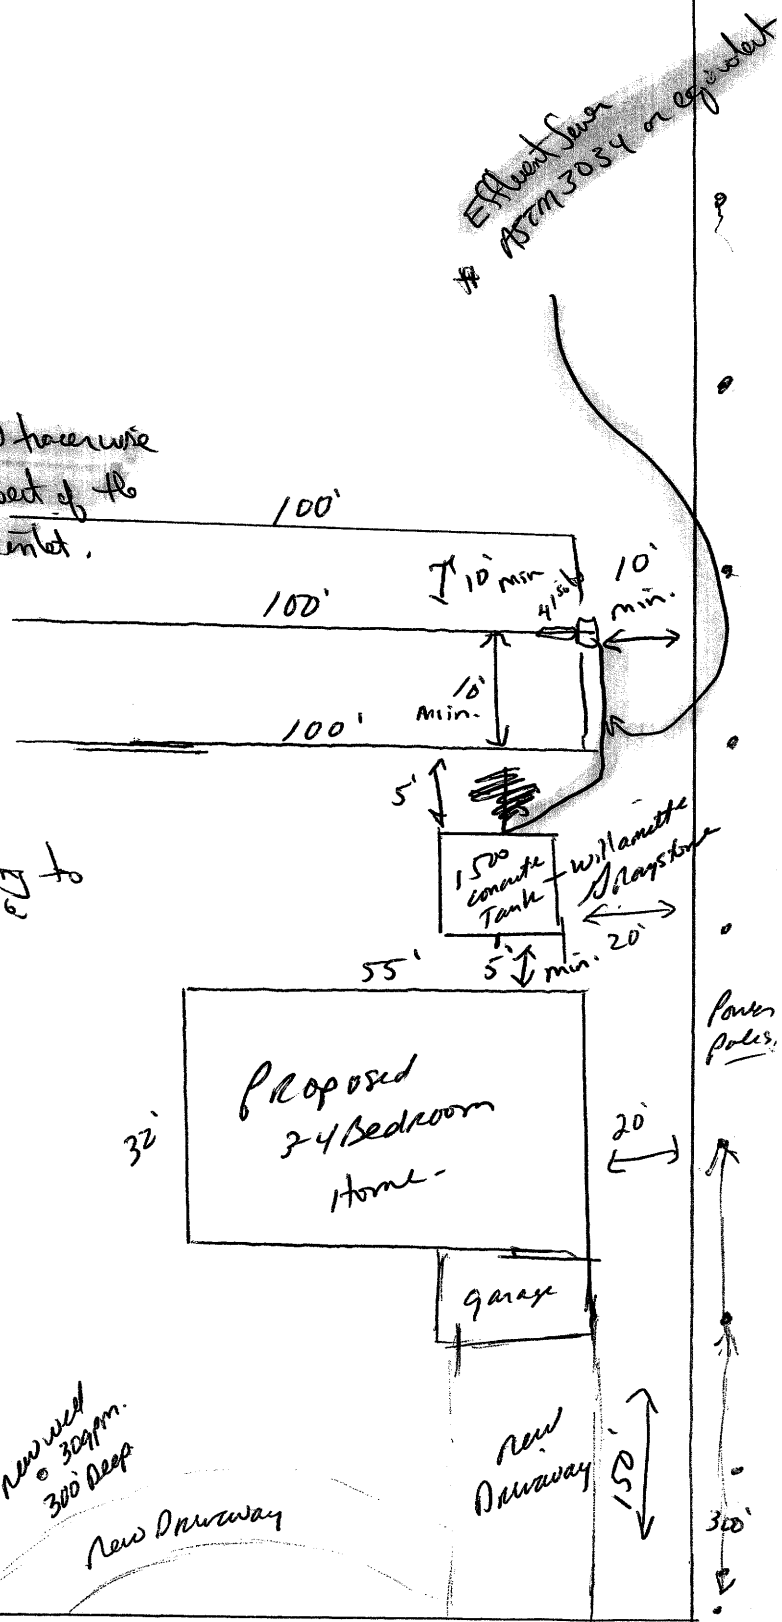 Effluent Sewer
* ASTM 3034 or equivalent
tracerwire
of the
inlet.
100'
10' min
10'
min.
100'
10'
min.
100'
5'
1500
concrete
Tank
Willamette
Graystone
20'
to
55'
5'
min.
Power
Poles.
Proposed
3-4 Bedroom
Home-
32'
20'
garage
new well
@ 30gpm.
300' Deep
new Driveway
new
Driveway
150'
300'